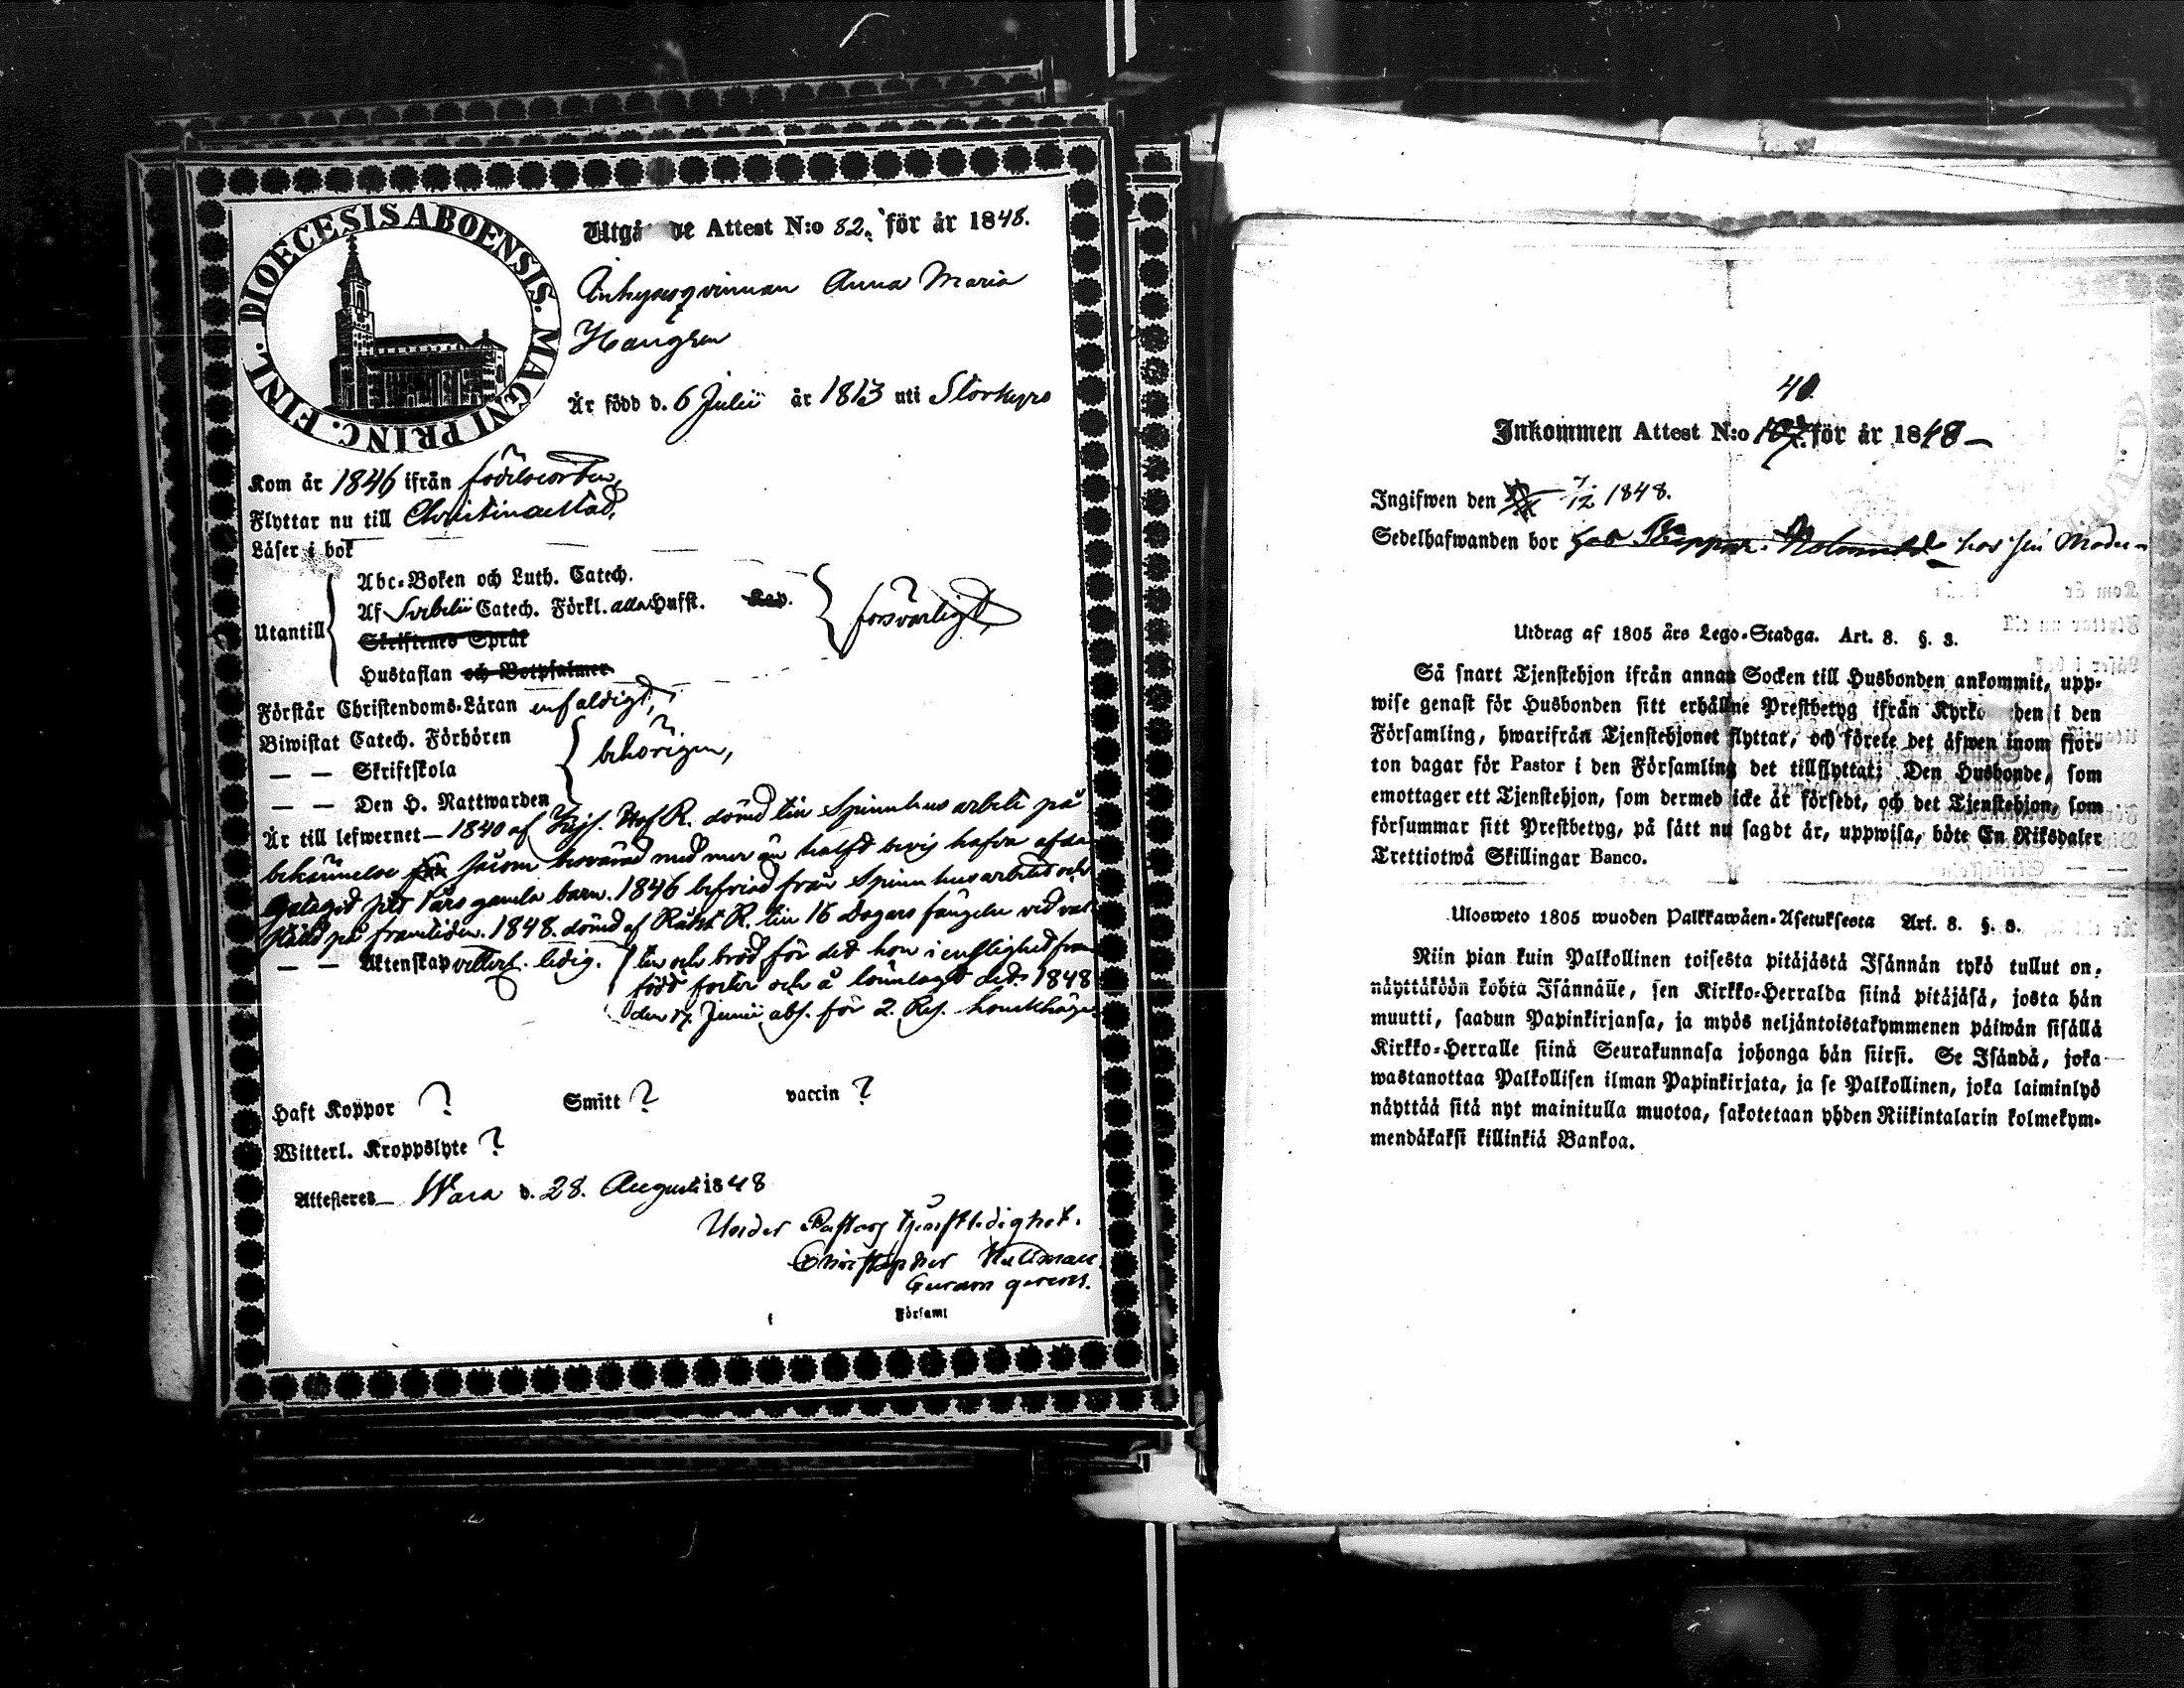 DIOECESIS ABOENSIS. MAGNI PRINC. FINL.
Utgå de Attest N:o 82. för år 1848.
Inhysesqvinnan Anna Maria
Haugren
Är född d. 6 Julii år 1813 uti Storkyro
Kom år 1846 ifrån födelseorten,
Flyttar nu till Christinæstad,
Läser i bok
Utantill
Abc-Boken och Luth. Catech.
Af Svebelii Catech. Förkl. alla Hufst. Kap.
Skriftenes Språk
Hustaflan och Botpsalmer
försvarligt,
Förstår Christendoms-Läran enfaldigt,
Biwistat Catech. Förhören
— — Skriftskola
— — Den H. Nattwarden
behörigen,
Är till lefwernet — 1840 af Kejs. Hof R. dömd till Spinnhus arbete på
bekännelse såsom besvärad med mer än halft bevis hafva afda
sitt 1 års gamla barn. 1846 befriad från Spinnhusarbetet och
ställd på framtiden. 1848. dömd af Rådst. R. till 16 Dagars fängelse vid vat
— — Äktenskap vitterl. ledig.
ten och bröd för det hon i enslighet fram
födt foster och å lönnlagt det. 1848
den 17. Junii abs. för 2. Res. lönskhäge
Haft Koppor ? Smitt ? vaccin ?
Witterl. Kroppslyte ?
Attesteres — Wasa d. 28. Augusti 1848
Under Pastors tjenstledighet.
Christopher
Curam gerens.
Församl
40
Inkommen Attest N:o för år 1848 —
Ingifwen den 7/12 1848.
Sedelhafwanden bor hos sin Moder
Utdrag af 1805 års Lego-Stadga. Art. 8. §. 3.
Så snart Tjenstehjon ifrån annan Socken till Husbonden ankommit, upp-
wise genast för Husbonden sitt erhållne Prestbetyg ifrån Kyrko den i den
Församling, hwarifrån Tjenstehjonet flyttat, och förete det äfwen inom fjor-
ton dagar för Pastor i den Församling det tillflyttat; Den Husbonde, som
emottager ett Tjenstehjon, som dermed icke är försedt, och det Tjenstehjon, som
försummar sitt Prestbetyg, på sätt nu sagdt är, uppwisa, böte En Riksdaler
Trettiotwå Skillingar Banco.
Ulosweto 1805 wuoden Palkkawäen-Asetuksesta Art. 8. §. 3.
Niin pian kuin Palkollinen toisesta pitäjästä Isännän tykö tullut on,
näyttäköön kohta Isännälle, sen Kirkko-Herralda siinä pitäjäsä, josta hän
muutti, saadun Papinkirjansa, ja myös neljäntoistakymmenen päiwän sisällä
Kirkko-Herralle siinä Seurakunnasa johonga hän siirsi. Se Isändä, joka
wastanottaa Palkollisen ilman Papinkirjata, ja se Palkollinen, joka laiminlyö
näyttää sitä nyt mainitulla muotoa, sakotetaan yhden Riikintalarin kolmekym-
mendäkaksi killinkiä Bankoa.